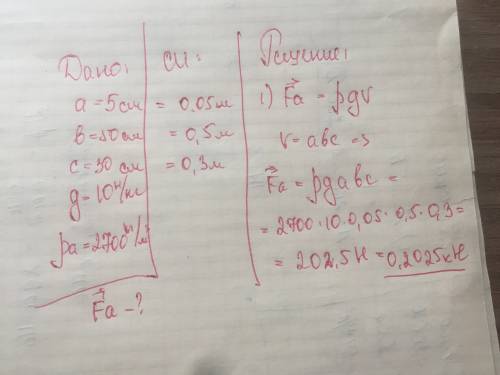 Дано:
a = 5 см
b = 50 см
c = 30 см
g = 10 Н/кг
ρa = 2700 кг/м³
F⃗a - ?
СИ:
= 0.05 м
= 0,5 м
= 0,3 м
Решение:
1) F⃗a = ρgV
V = abc ⇒
F⃗a = ρgabc =
= 2700·10·0,05·0,5·0,3 =
= 202,5 Н = 0,2025 кН